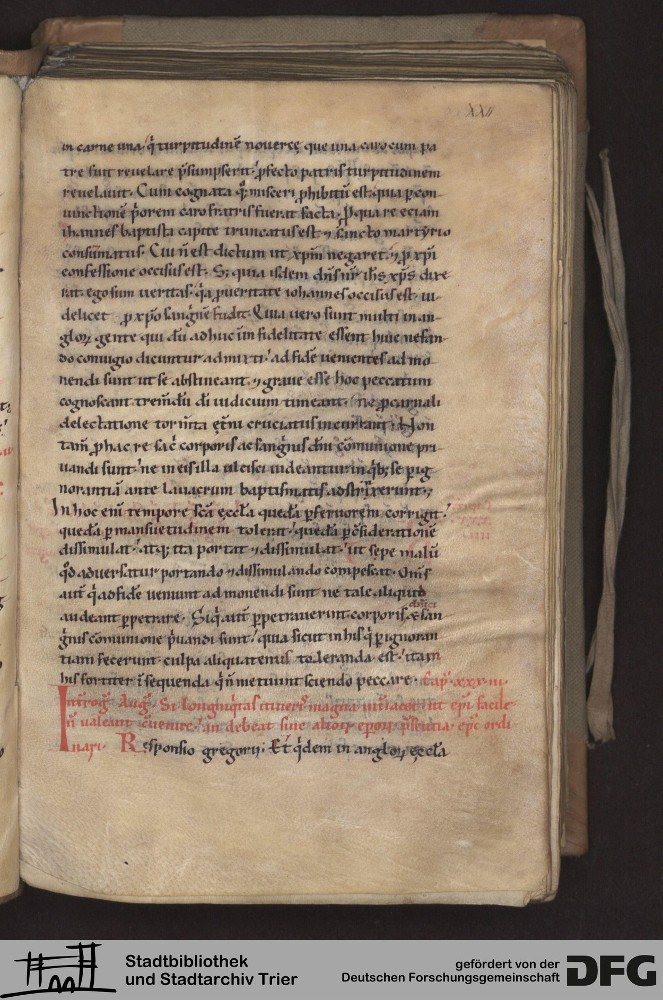 XXII
in carne una. q̄ turpitudinē novercę que una caro cum pa
tre fuit revelare p̄sumpserit. p̄fecto patris turpitudinem
revelavit. Cum cognata q̄ misceri phibitū est. quia p con
iunctionē p̄orem caro fratris fuerat facta. Pqua re eciam
iohannes baptista capite truncatus est ⁊ sancto martyrio
consūmatus. Cui n̄ est dictum ut xp̄m negaret. ⁊ p xp̄i
confessione occisus est. Si quia isdem dn̄s nr̄ ih̄s xp̄s dixe
rat. ego sum veritas. q̄a p veritate iohannes occisus est. vi
delicet p xp̄o sanguinē fudit. Quia vero sunt multi in an
gloꝝ gente qui dū adhuc in infidelitate essent huic nefan
do coniugio dicuntur admixti. ad fidē venientes admo
nendi sunt ut se abstineant. ⁊ grave esse hoc peccatum
cognoscant. tremdū di iudicium timeant. ne p carnali
delectatione tormta et̄ni cruciatus incurrant. Non
tam̄ p hac re sac̄ corporis ac sanguīs dn̄i cōmunione pri
vandi sunt. ne in eis illa ulcisci videantur in qb; se p ig
norantiā ante lavacrum baptismatis adstrīxerunt.
In hoc enī tempore scā ęccła quedā p fervorem corrigit.
quedā p mansuetudinem tolerat. quedā p cōsiderationē
dissimulat. atq; ita portat ⁊ dissimulat. ut sepe malū
qd̄ adversatur portando ⁊ dissimulando compescat. Om̄s
aut̄ q̄ ad fidē veniunt admonendi sunt ne tale aliquid
audeant ppetrare. Siq̄ aut̄ ppetraverunt. corporis dn̄ici & san
guīs cōmunione p̄vandi sunt. quia sicut in his q̄ p ignoran
tiam fecerunt culpa aliquatenus toleranda est. ita in
his fortiter īsequenda q̄ n̄ metuunt sciendo peccare. Cap̄. xxx.iii.
Interrog̅ Aug̅. Si longinq̄tas itineris magna interiacet. ut ep̄i facile
n̄ valeant cvenire. an debeat sine alioꝝ ep̄oꝝ p̄sentia ep̄c ordi
nari. Responsio gregorii. Et q̄dem in angloꝝ ęccła
Stadtbibliothek
und Stadtarchiv Trier
gefördert von der
Deutschen Forschungsgemeinschaft
DFG